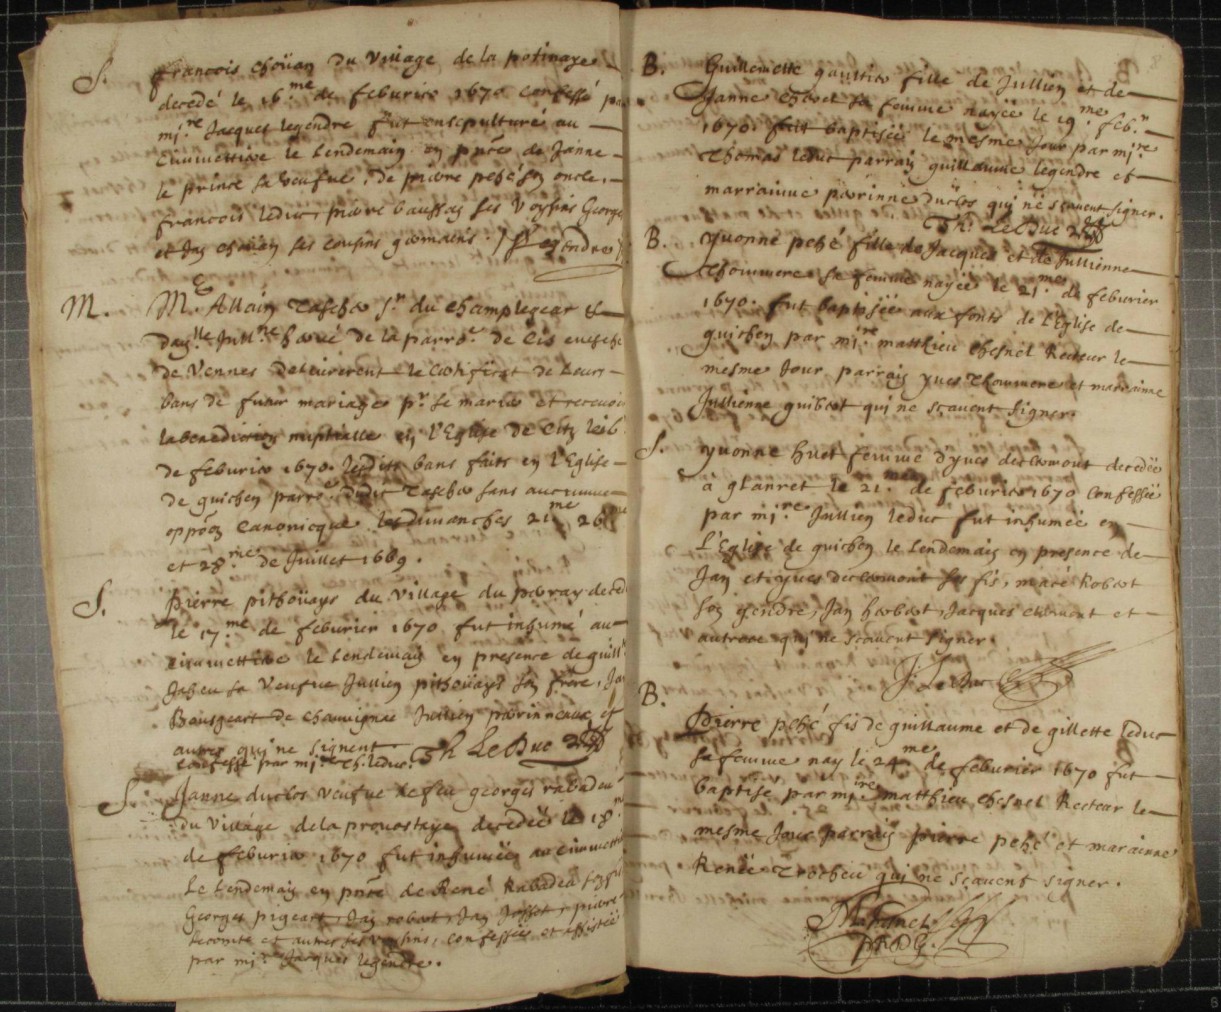 S. francois choüan du village de la potinaye
decedé le 16.me de feburier 1670 confessé par
mi.re Jacques legendre fut ensepulturé au
cimmettiere le lendemain en pñce de Janne
le prince sa veufue, de pierre pehé son oncle,
francois leduc, pierre baussay ses voysins George
et Jan choüan ses cousins germains. J Legendre
M. M.e Allain Tascher s.r du champlegear et
dam.lle Jull.ne hervé de la parr. de evesché
de Vennes delivrerent le certificat de leurs
bans de futur mariage p.r se marier et recevoir
la benediction nuptialle en l'Eglise de le 16
de feburier 1670. lesdits bans faits en l'Eglise
de guichen parr. dudit Tascher sans aucunne
oppõon canonicque les dimanches 21.me 26.me
et 28.me de Juillet 1669.
S. Pierre pithoüays du village du perray deced
le 17.me de feburier 1670 fut inhumé au
cimmettiere le lendemain en presence de guill.
sa veufue Jullien pithoüays son frere, Jan
Bausgeart de chauvignac Jullien perinneaux et
autres qui ne signent Th Le Duc
confessé par mi.re Th. leduc.
S. Janne duclos veufue de feu georges rabadeu
du village de la prouostaye decedeë le 18.me
de feburier 1670 fut inhumeë au cimmett
le lendemain en pñce de René Rabadeu son fils
Georges pigeart, Jan robert, Jan Josset, pierre
lecomte et autres ses voysins, confesseë et assisteë
par mi.re Jacques legendre.
B. Guillemette gaultier fille de Jullien et de
Janne sa femme nayeë le 19.me feb.r
1670. fut baptiseë le mesme Jour par mi.re
Thomas leduc parrain guillaume legendre et
marrainne perinne duclos qui ne scauent signer.
Th. Le Duc
B. Yvonne pehé fille de Jacques et de Jullienne
Thommere sa femme nayeë le 21.me de feburier
1670. fut baptiseë aux fonts de l'Eglise de
guichen par mi.re matthieu chesnel Recteur le
mesme Jour parrain yves Thommere et marrainne
Jullienne guibert qui ne scauent signer.
S. yvonne huet femme d'yves declermont decedeë
à glanret le 21.me de feburier 1670 confesseë
par mi.re Jullien leduc fut inhumeë en
l'Eglise de guichen le lendemain en presence de
Jan et yves declermont ses fis, macé Robert
son gendre, Jan herbert, Jacques clement et
autres qui ne scauent signer.
J. Le Duc
B. Pierre pehé fis de guillaume et de gillette leduc
sa femme nay le 24.me de feburier 1670 fut
baptisé par mi.re matthieu chesnel Recteur le
mesme Jour parrain pierre pehé et marainne
Reneë Trocheu qui ne scauent signer.
M. Chesnel